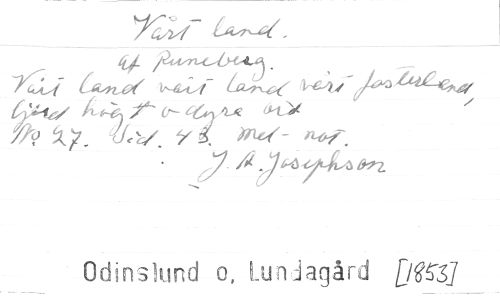 Vårt land.
af Runeberg.
Vårt land vårt land vårt fosterland,
ljud högt o dyra ord
No 27. Sid. 43. Mel- not.
J. A. Josephson
Odinslund o, Lundagård [1853]